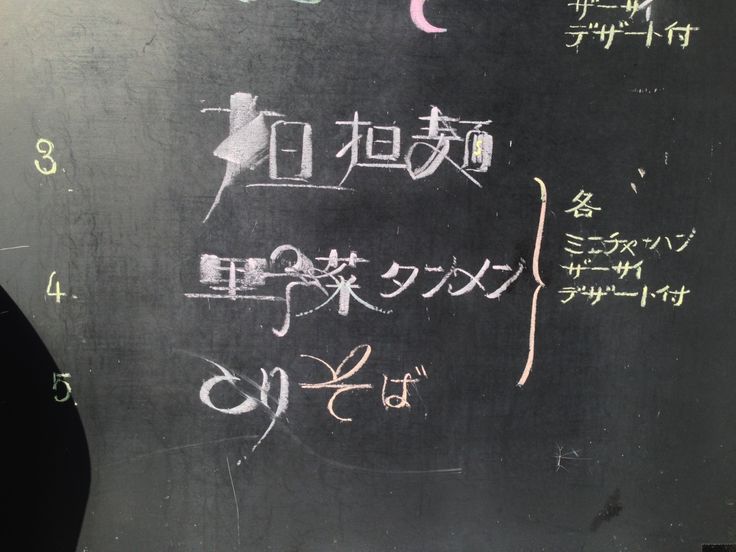 ザーサイ
デザート付
3. 担担麺
4. 野菜タンメン
5. とりそば
各
ミニチャーハン
ザーサイ
デザート付